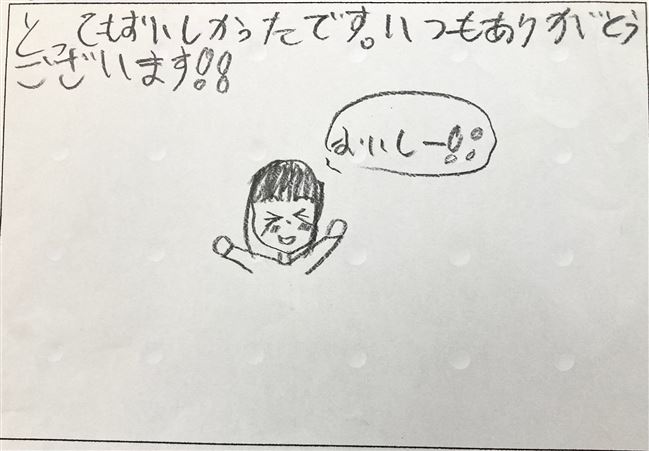 とってもおいしかったです。いつもありがとう
ございます!!
おいしー!!